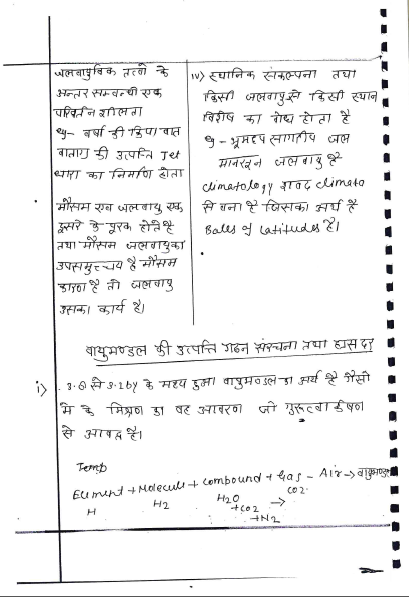 जलवायुविक तत्वो के
अन्तर सम्बन्धी एक
परिवर्तन शीलता
वर्षा की क्रिया वात
की उत्पत्ति Jet
धारा का निर्माण होता
मौसम एवं जलवायु एक
दूसरे के पूरक होते है
तथा मौसम जलवायु का
उपसमुच्चय है मौसम
कारण है तो जलवायु
उसका कार्य है।
iv) स्थानिक संकल्पना तथा
किसी जलवायु से किसी स्थान
विशेष का बोध होता है
जल
मानसून जलवायु है
Climatology शब्द climato
से बना है जिसका अर्थ है
of Latitudes है।
वायुमण्डल की उत्पत्ति गठन संरचना तथा
i) 3.6 से 3.2by के मध्य हुआ वायुमण्डल का अर्थ है गैसो
के मिश्रण का वह आवरण जो गुरुत्वाकर्षण
से आबद्ध है।
Temp
Element + Molecule + Compound + Gas - Air → वायुमण्डल
H H2 H2O + CO2 + N2 → CO2